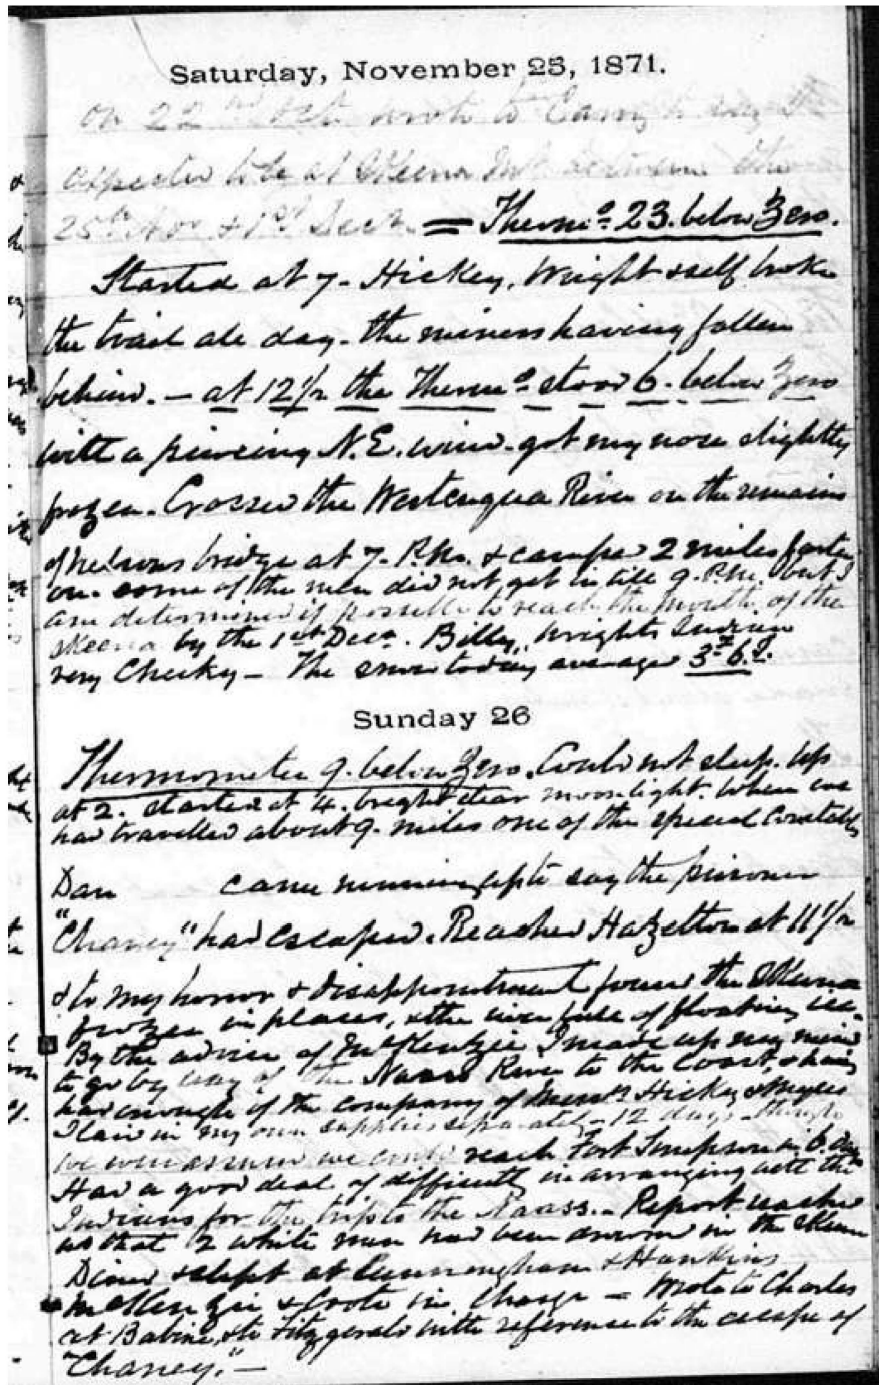 Saturday, November 25, 1871.
on 22nd Oct wrote to to say I
expected to be at Skeena between the
25th Nov & 1st Decr. = Thermo. 23. below Zero.
Started at 7 - Hickey, Wright & self broke
the trail all day - the miners having fallen
behind. - at 12 1/2 the Thermo. stood 6. below Zero
with a piercing N.E. wind - got my nose slightly
frozen. Crossed the River on the remains
of bridge at 7. P.M. & camped 2 miles farther
on. some of the men did not get in till 9. P.M. but I
am determined if possible to reach the mouth of the
Skeena by the 1st Decr. Billy, Wrights Indian
very Cheeky - The snow today averaged 3. 6.
Sunday 26
Thermometer 9. below Zero. Could not sleep. up
at 2. started at 4. bright clear moonlight. When we
had travelled about 9. miles one of the special Constables
Dan came running up to say the prisoner
"Chaney" had escaped. Reached Hazelton at 11 1/2
& to my horror & disappointment found the Skeena
frozen in places, & the river full of floating ice.
By the advice of McKenzie I made up my mind
to go by way of the Naass River to the Coast, & having
had enough of the company of Messrs Hickey &
I laid in my own supplies separately - 12 days though
we were assured we could reach Fort Simpson in 6. days
Had a good deal of difficulty in arranging with the
Indians for the trip to the Naass. - Report reached
us that 2 white men had been drowned in the Skeena
Dined & slept at Cunningham & Hankins
McKenzie & Coote in charge - Wrote to Charles
at Babine, & to Fitzgerald with reference to the escape of
"Chaney." -